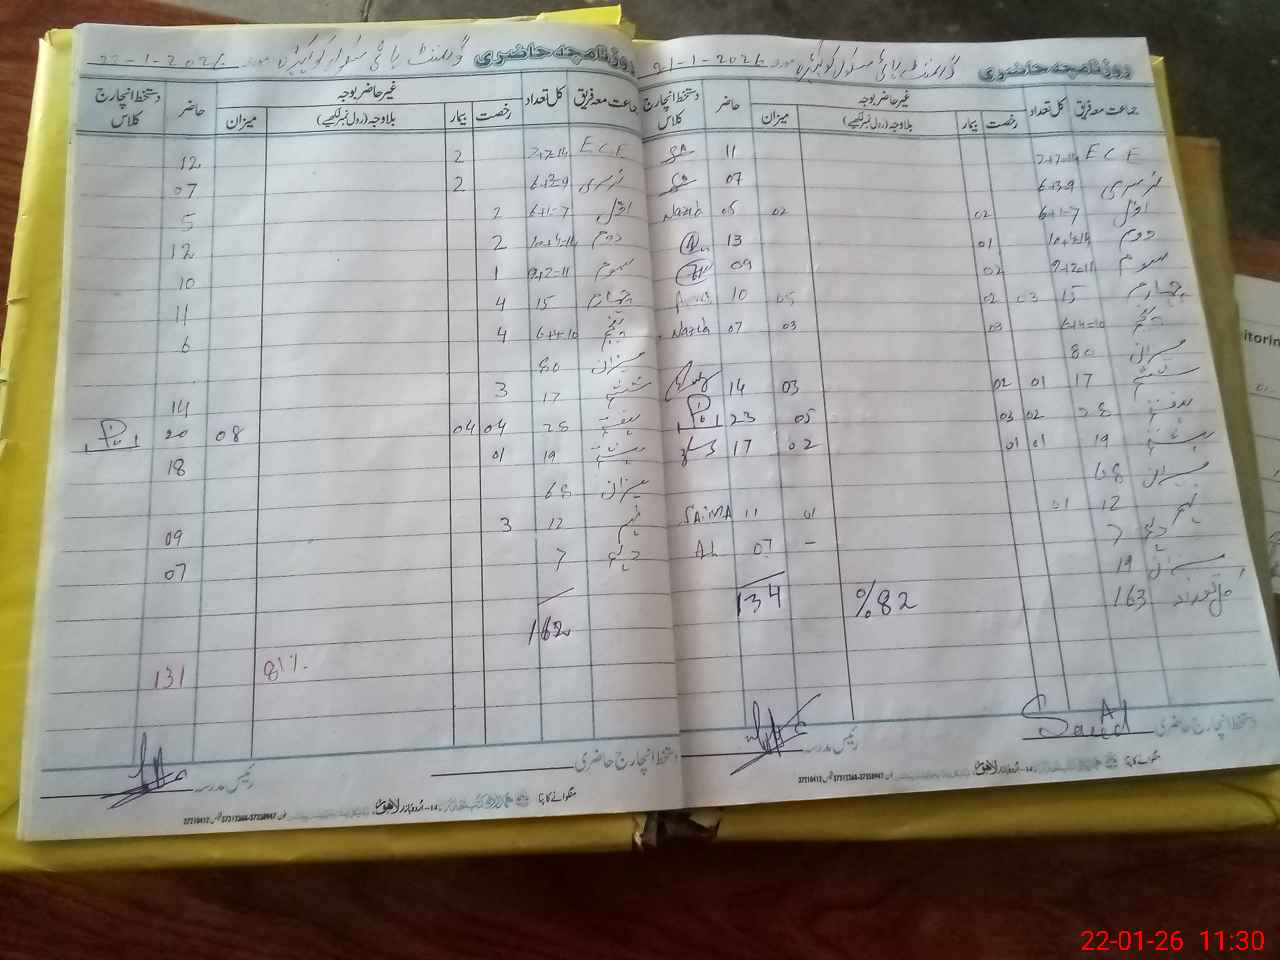 روزنامچہ حاضری گورنمنٹ ہائی سکول مورخہ 21-1-2026
جماعت معہ فریق کل تعداد غیر حاضر بوجہ حاضر دستخط انچارج کلاس
رخصت بیمار بلاوجہ (رول نمبر لکھیے) میزان
ECE 7+7=14 11
نرسری 6+3=9 07
اول 6+1=7 02 02 05 Nazia
دوم 10+4=14 01 13
سوم 9+2=11 02 09
چہارم 15 03 02 05 10
پنجم 6+4=10 03 03 07 Nazia
میزان 80
ششم 17 01 02 03 14
ہفتم 28 02 03 05 23
ہشتم 19 01 01 02 17
میزان 68
نہم 12 01 01 11 SAIMA
دہم 7 - 07 AL
میزان 19
کل تعداد 163 %82 134
دستخط انچارج حاضری Saeed رئیس مدرسہ
منگوانے کا پتہ 14-اردو بازار لاہور فون 37358967-37313568 فیکس 37210412
روزنامچہ حاضری گورنمنٹ ہائی سکول مورخہ 22-1-2026
جماعت معہ فریق کل تعداد غیر حاضر بوجہ حاضر دستخط انچارج کلاس
رخصت بیمار بلاوجہ (رول نمبر لکھیے) میزان
ECE 7+7=14 2 12
نرسری 6+3=9 2 07
اول 6+1=7 2 5
دوم 10+4=14 2 12
سوم 9+2=11 1 10
چہارم 15 4 11
پنجم 6+4=10 4 6
میزان 80
ششم 17 3 14
ہفتم 28 04 04 08 20
ہشتم 19 01 18
میزان 68
نہم 12 3 09
دہم 7 07
162
81% 131
دستخط انچارج حاضری رئیس مدرسہ
منگوانے کا پتہ 14-اردو بازار لاہور فون 37358967-37313568 فیکس 37210412
itorin
22-01-26 11:30